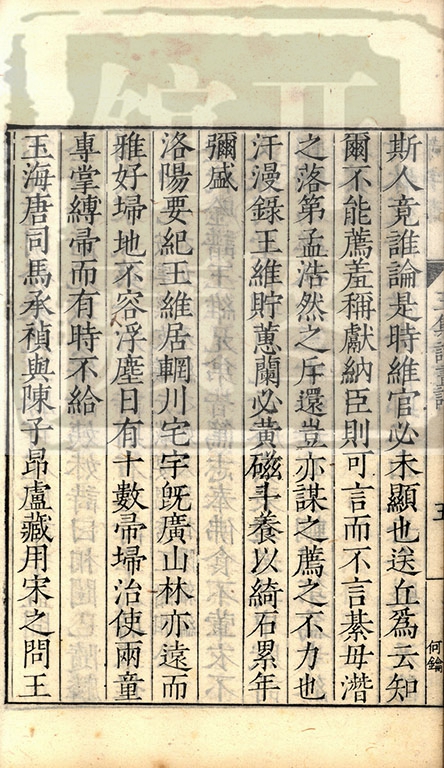 斯人竟誰論是時維官必未顯也送丘爲云知
爾不能薦羞稱獻納臣則可言而不言綦毋潛
之落第孟浩然之斥還豈亦謀之薦之不力也
汗漫錄王維貯蕙蘭必黃磁斗養以綺石累年
彌盛
洛陽要紀王維居輞川宅宇旣廣山林亦遠而
雅好埽地不容浮塵日有十數帚埽治使兩童
專掌縛帚而有時不給
玉海唐司馬承禎與陳子昂盧藏用宋之問王
五
何鑰